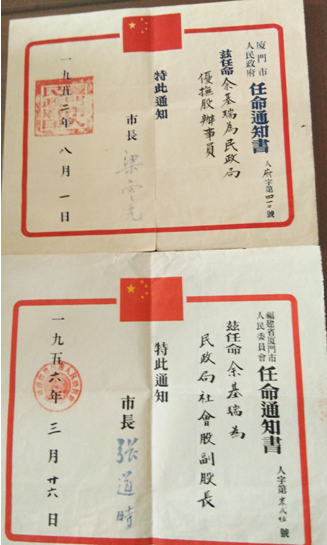 廈門市
人民政府
任命通知書
人府字第四一〇號
茲任命余基瑞為民政局
優撫股辦事員
特此通知
市長 梁靈光
一九五二年八月一日
福建省廈門市
人民委員會
任命通知書
人字第 號
茲任命余基瑞為
民政局社會股副股長
特此通知
市長 張道時
一九五六年三月廿六日